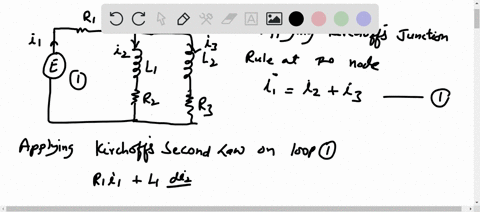 R1
i1
E
1
i2
L1
R2
i3
L2
R3
Kirchoff's Junction
Rule at no node
i1 = i2 + i3 —— 1
Applying Kirchoff's Second Law on loop 1
R1i1 + L1 di2